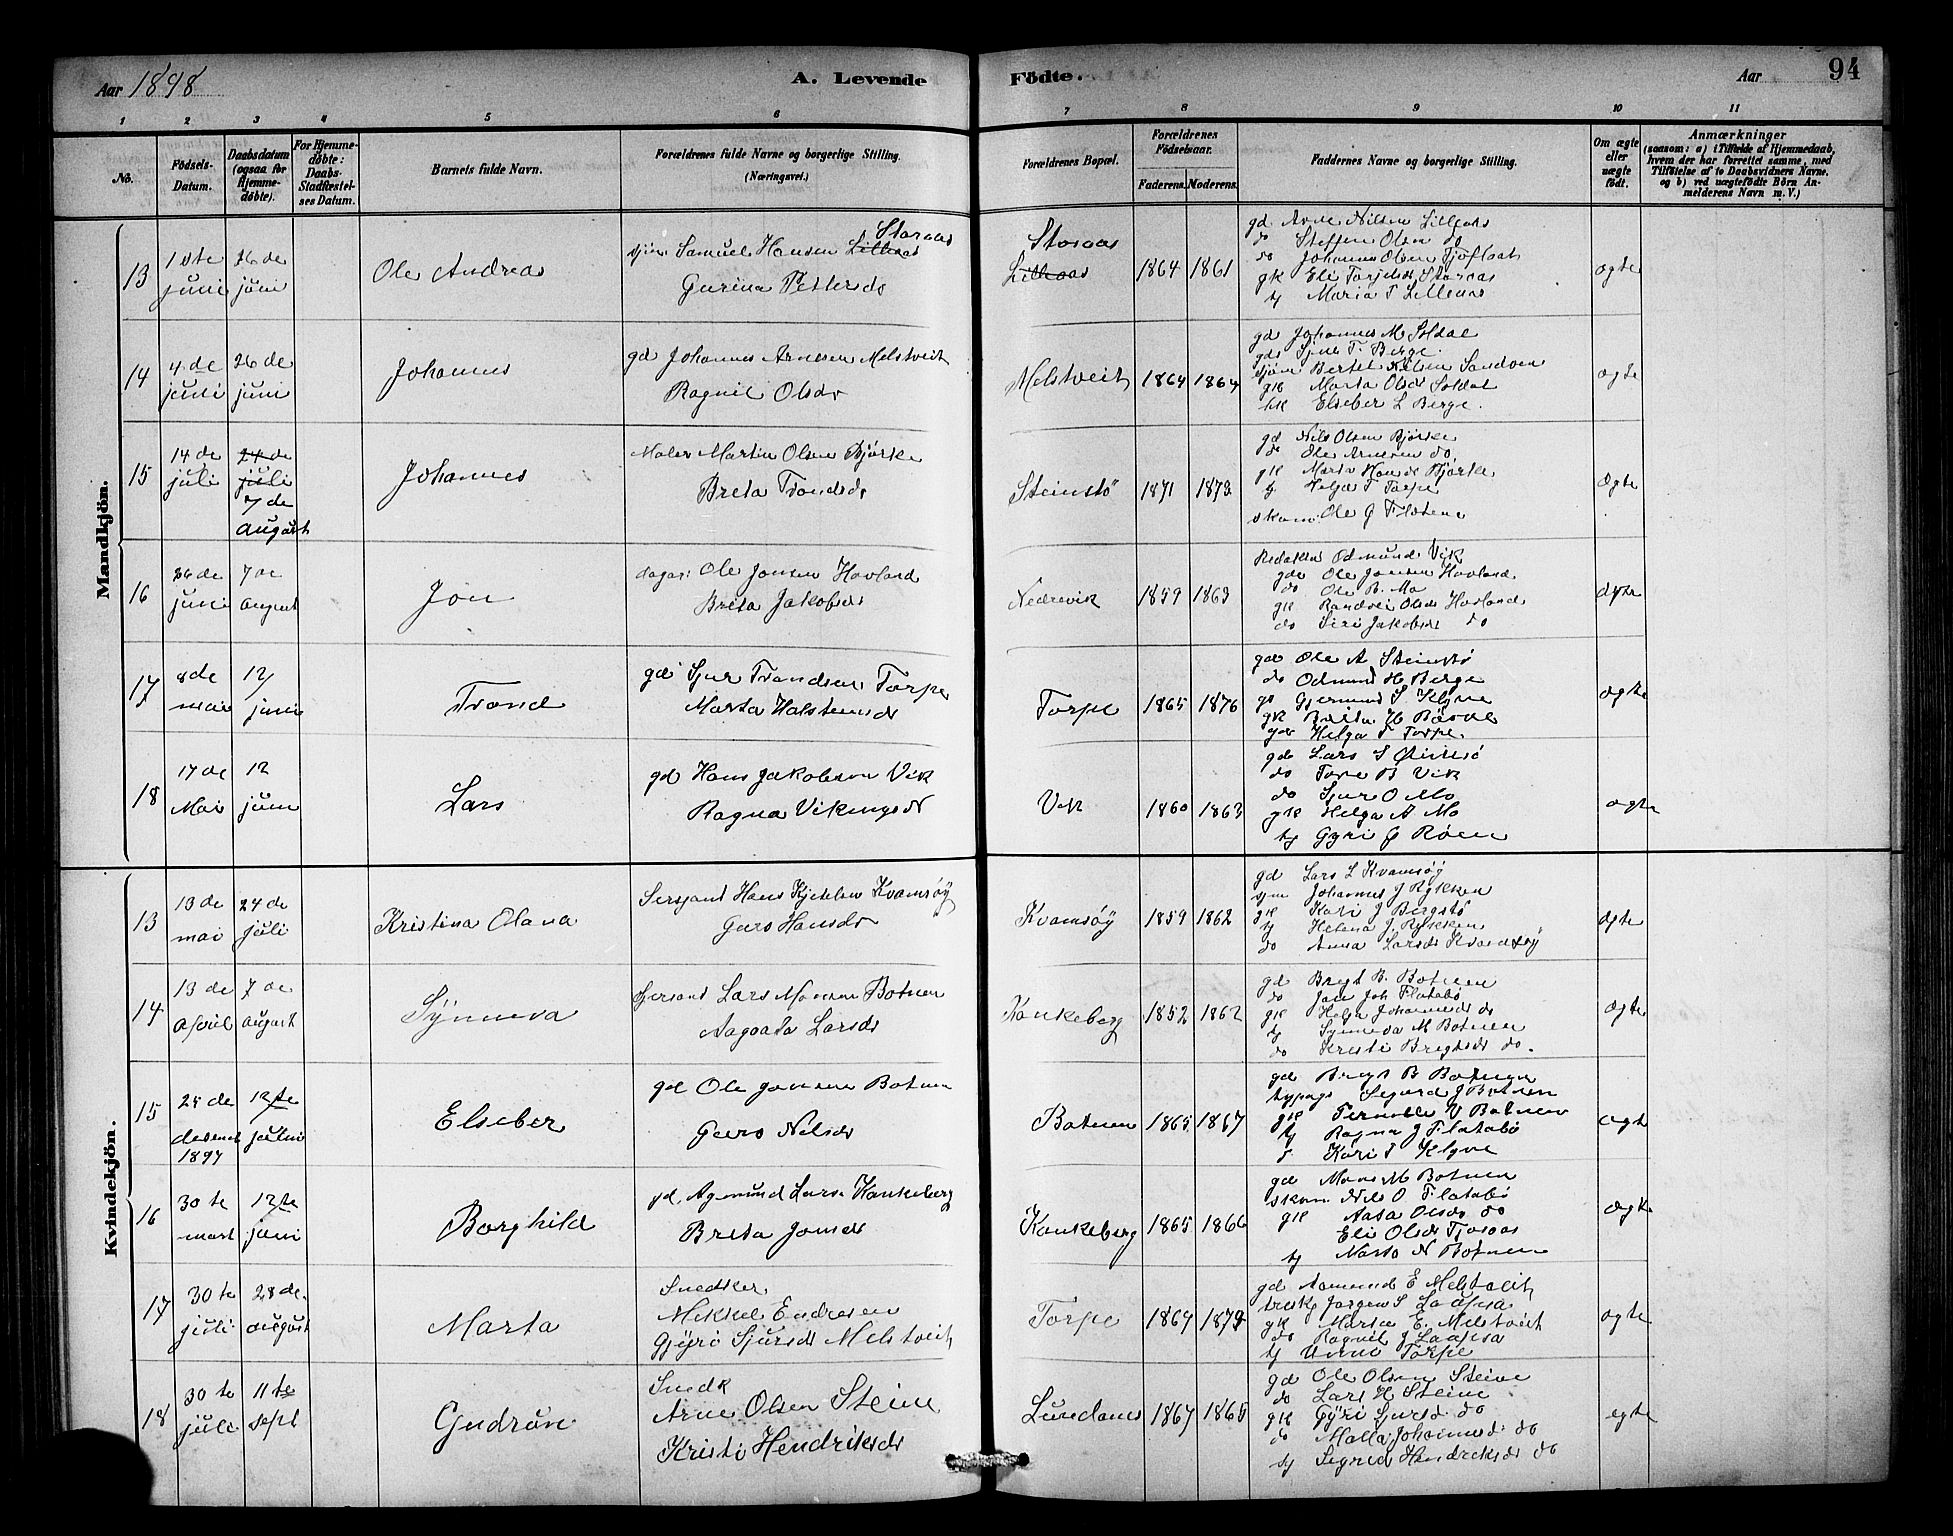 Aar 1898 A. Levende Födte. Aar 94
1 2 3 4 5 6 7 8 9 10 11
No.
Födsels-Datum.
Daabsdatum (ogsaa for Hjemme-döbte).
For Hjemme-döbte: Daabs-Stadfæstel-ses Datum.
Barnets fulde Navn.
Forældrenes fulde Navne og borgerlige Stilling.
(Næringsvei.)
Forældrenes Bopæl.
Forældrenes Födselsaar.
Faderens. Moderens.
Faddernes Navne og borgerlige Stilling.
Om ægte eller uægte födt.
Anmærkninger
(saasom: a) i Tilfælde af Hjemmedaab,
hvem der har forrettet samme, med
Tilföielse af to Daabsvidners Navne.
og b) ved uægtefödte Börn An-
melderens Navn m. V.)
Mandkjön.
13
1ste juni
26 de juni
Ole Andreas
Storaas
Samuel Hansen Lilleaas
Gurina Pettersdr
Storaas
Lilleaas
1864 1861
gd Arne Nilsen Lilleaas
do Steffen Olsen do
do Johannes Olsen
gk Eli Torjelsdr Storaas
tj Maria T Lilleaas
ogte
14
4 de juni
26 de juni
Johannes
gd Johannes Arnesen Melstveit
Ragnil Olsdr
Melstveit
1864 1864
gd Johannes M Soldal
gds Sjur T. Berge
Bertel Nilsen Sandven
gk Marta Olsdr Soldal
hk Elseber L Berge.
ogte
15
14 de juli
24 de juli
7 de august
Johannes
Maler Martin Olsen Bjørke
Breta Trondsdr
Steinstö
1871 1873
gd Nils Olsen Bjørke
do Ole Arnesen do.
gk Marta Hansdr Bjørke
tj Helga T Torpe
skom Ole J Flotene
ogte
16
26 de juni
7 de august
Jon
Ole Jonsen Hovland
Breta Jakobsdr
Nedrevik
1859 1863
Odmund Vik
gd Ole Jonsen Hovland
do Ole B. Mo
gk Randvei Olsdr Hovland
do Siri Jakobsdr do
17
8 de mai
12 juni
Trond
gd Sjur Trondsen Torpe
Marta Halsteinsdr
Torpe
1865 1876
gd Ole A Steinstö
do Odmund H Berge
gd Gjermund S Klyve
gk Breta H Børve
Helga T Torpe.
ogte
18
17 de Mai
12 juni
Lars
gd Hans Jakobsen Vik
Ragna Vikingsdr
Vik
1860 1863
gd Lars S
do Tore B Vik
do Sjur O Mo
gk Helga A Mo
tj Gyri J Røen
ogte
Kvindekjön.
13
13 de mai
24 de juli
Kristina Olana
Sersjant Hans Kjetilsen Kvamsöy
Guro Hansdr
Kvamsöy
1859 1862
gd Lars L Kvamsöy
Johannes J Rykken
gk Kari J Bergstö
tj Helena J. Rykken
do Anna Larsdr Kvamsöy
ogte
14
13 de April
7 de august
Synneva
Sersant Lars Monsen Botnen
Aagaata Larsdr
Kankeberg
1852 1862
gd Brygt B. Botnen
do Jon Joh Flatabø
gk Helga Johannesdr do
tj Synneva M Botnen
do Kristi Brygtsdr do.
ogte
15
28 de desember 1897
12te juni
Elseber
gd Ole Jonsen Botnen
Guro Nilsdr
Botnen
1865 1867
gd Brygt B Botnen
Sigurd J Botnen
gk V Botnen
tj Ragna J Flatabö
Kari T Klyve
ogte
16
30 te mart
12te juni
Borghild
gd. Agmund Larsen Kankeberg
Breta Jonsdr
Kankeberg
1865 1866
gd Mons M Botnen
skom Nils O Flatabö
gk Aasa Olsdr do
Eli Olsdr
tj Marta N Botnen
ogte
17
30 te juli
28 de. august
Marta
Snedker
Mikkel Endresen
Gjyri Sjursdr Melstveit
Torpe
1864
gd Aamund E Melstveit
Jørgen S Laapsa
gk Marta E. Melstveit
do Ragnil J Laapsa
tj Unni Torpe
ogte
18
30 te juli
11 te sept
Gudrun
Snedk
Arne Olsen Steine
Kristi Hendriksdr
Lundanes
1867 1865
gd Ole Olsen Steine
do Lars H Steine
gk Gyri Sjursdr do
do Malla Johannesdr do
tj Sigrid Hendriksdr do
egte